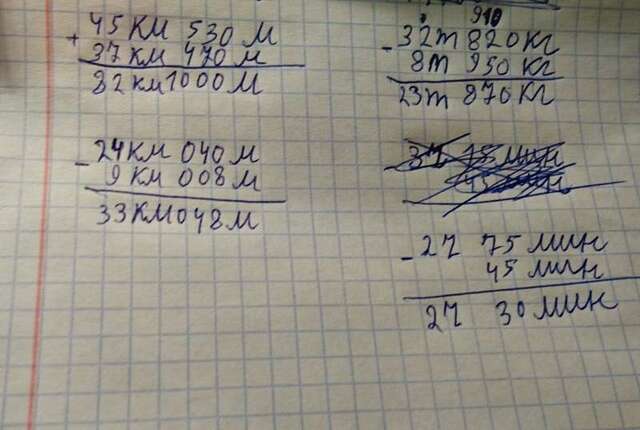 + 45 км 530 м
37 км 470 м
82 км 1000 м
- 24 км 040 м
9 км 008 м
33 км 048 м
910
- 32т 820 кг
8т 950 кг
23т 870 кг
- 2ч 75 мин
45 мин
2ч 30 мин